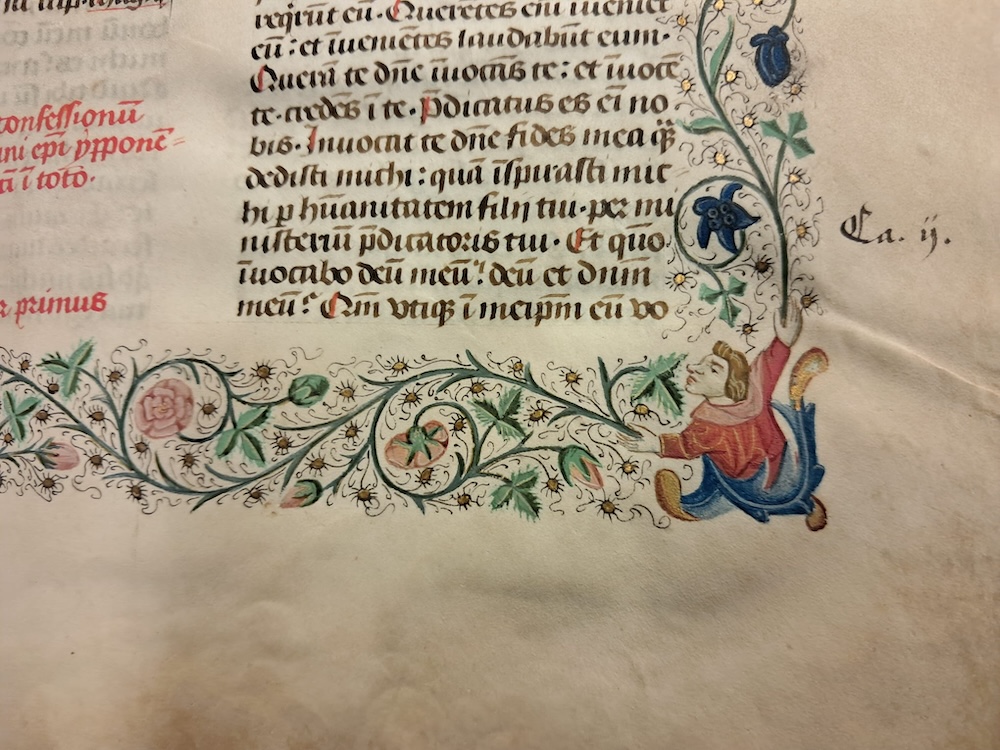 confessionū
ini ep̄i yppone=
ti ī toto.
r primus
reqͥrūt eū. Querētes eni īuēniēt
eū: et īueniētes laudabūt eum.
Querā te dn̄e īuocās te: et īuocē
te credēs ī te. p̄dicatus es eī no
bis. Inuocat te dn̄e fides mea qᷓ
dedisti michi: quā īspirasti mic
hi ꝑ hūanitatem filij tui. per mi
nisteriū p̄dicatoris tui. Et quō
īuocabo deū meū? deū et dnm̄
meū? Qm̄ vtiqꝫ ī meip̄m eū vo
Ca. ij.